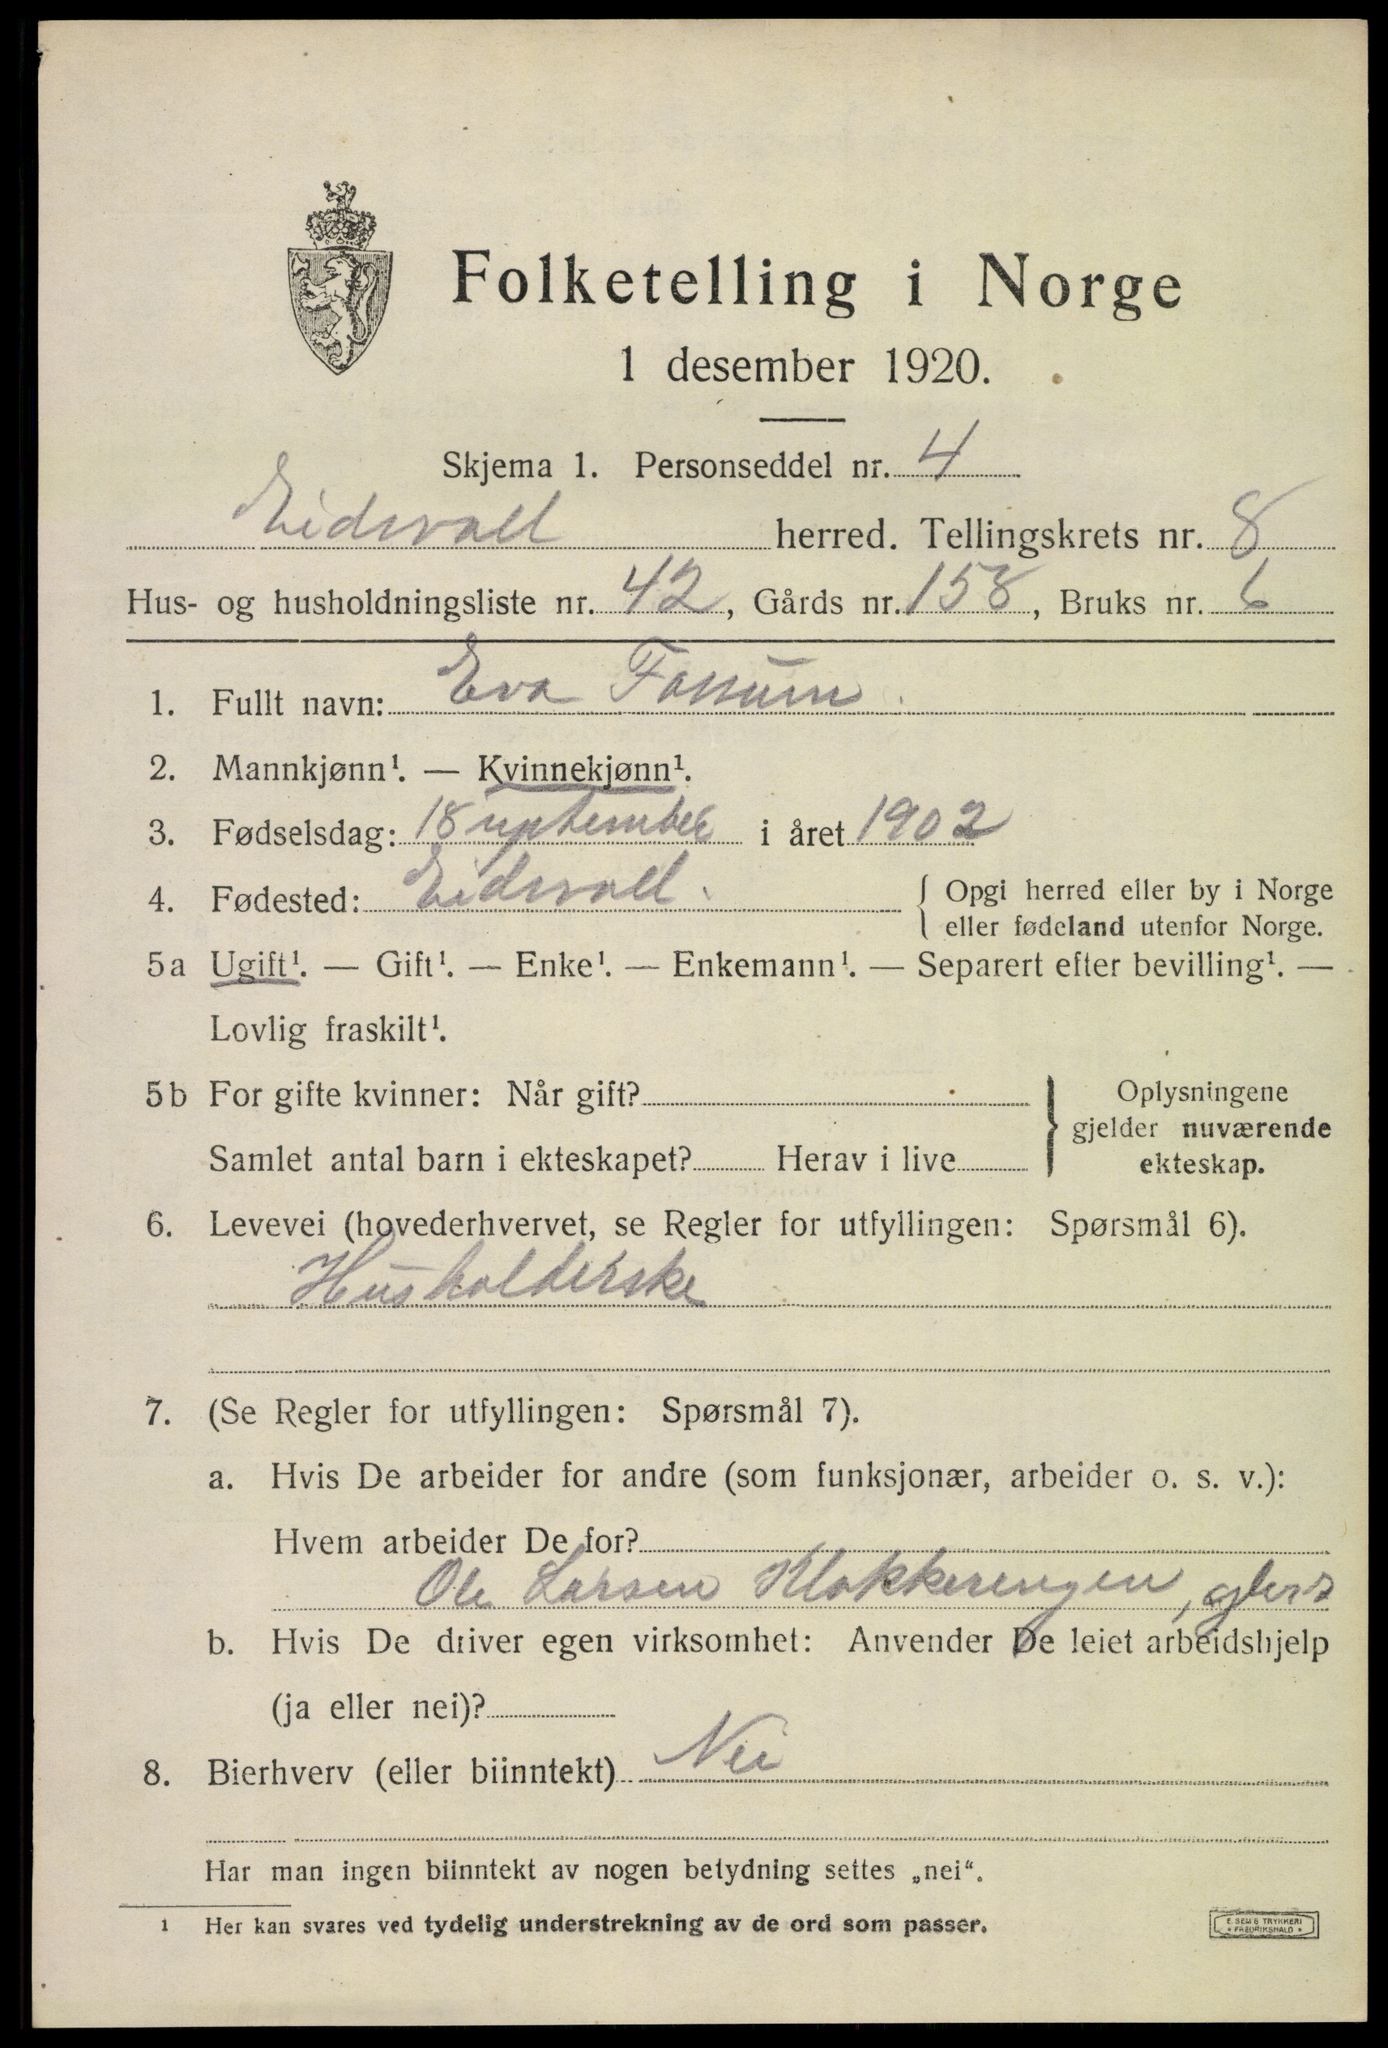 Folketelling i Norge
1 desember 1920.
Skjema 1. Personseddel nr. 4
Eidsvoll herred. Tellingskrets nr. 8
Hus- og husholdningsliste nr. 42, Gårds nr. 158, Bruks nr. 6
1. Fullt navn: Eva Fossum.
2. Mannkjønn¹. — Kvinnekjønn¹.
3. Fødselsdag: 18 september i året 1902
4. Fødested: Eidsvoll. { Opgi herred eller by i Norge
eller fødeland utenfor Norge.
5a Ugift¹. — Gift¹. — Enke¹. — Enkemann¹. — Separert efter bevilling¹. —
Lovlig fraskilt¹.
5b For gifte kvinner: Når gift? } Oplysningene
gjelder nuværende
Samlet antal barn i ekteskapet? Herav i live ekteskap.
6. Levevei (hovederhvervet, se Regler for utfyllingen: Spørsmål 6).
Husholderske
7. (Se Regler for utfyllingen: Spørsmål 7).
a. Hvis De arbeider for andre (som funksjonær, arbeider o. s. v.):
Hvem arbeider De for?
Ole Larsen Klokkerengen,
b. Hvis De driver egen virksomhet: Anvender De leiet arbeidshjelp
(ja eller nei)?
8. Bierhverv (eller biinntekt) Nei
Har man ingen biinntekt av nogen betydning settes „nei“.
1 Her kan svares ved tydelig understrekning av de ord som passer.
E. SEM'S TRYKKERI
* FREDRIKSHALD *